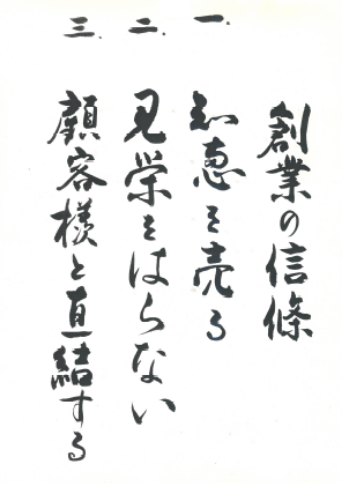 創業の信條
一、知恵を売る
二、見栄をはらない
三、顧客様と直結する